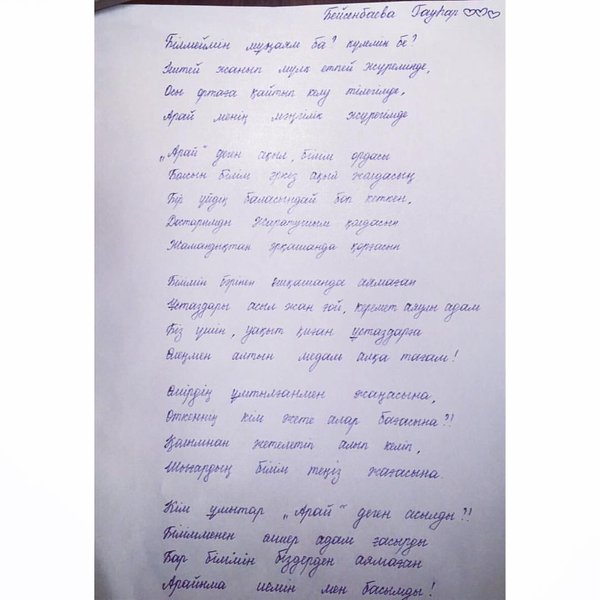 Бейсенбаева Гауһар
Білмеймін мұңаям ба? күлемін бе?
Іштей жанып мүлк етпей жүремінде,
Осы ортаға қайтып келу тілегімде,
Арай менің мәңгілік жүрегімде
„Арай" деген ақыл, білім ордасы
Басын білім әркез ақый жағдасың
Бір үйдің баласындай боп кеткен,
Достарымды Жаратушым қолдасын
Жамандықтан әрқашанда қорғасын
Білімін бәрінен ешқашанда аямаған
Ұстаздары асыл жан ғой, керемет аяулы адам
Біз үшін, уақыт қиған ұстаздарға
Өлеңмен алтын медаль алқа тағам!
Өмірдің ұмтылғанмен жаңасына,
Өткеннің кім жете алар бағасына?!
Қолымнан жетелетіп алып келіп,
Шығардың білім теңіз жағасына.
Кім ұмытар „Арай" деген асылды?!
Біліммен емшер адам ғасырды
Бар білімін біздерден аямаған
Арайыма иемін мен басымды!